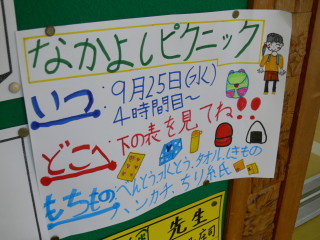 なかよしピクニック
いつ：9月25日(水)
4時間目〜
どこへ：下の表を見てね!!
もちもの：べんとう、水とう、タオル、しきもの
ハンカチ、ちり紙
先生